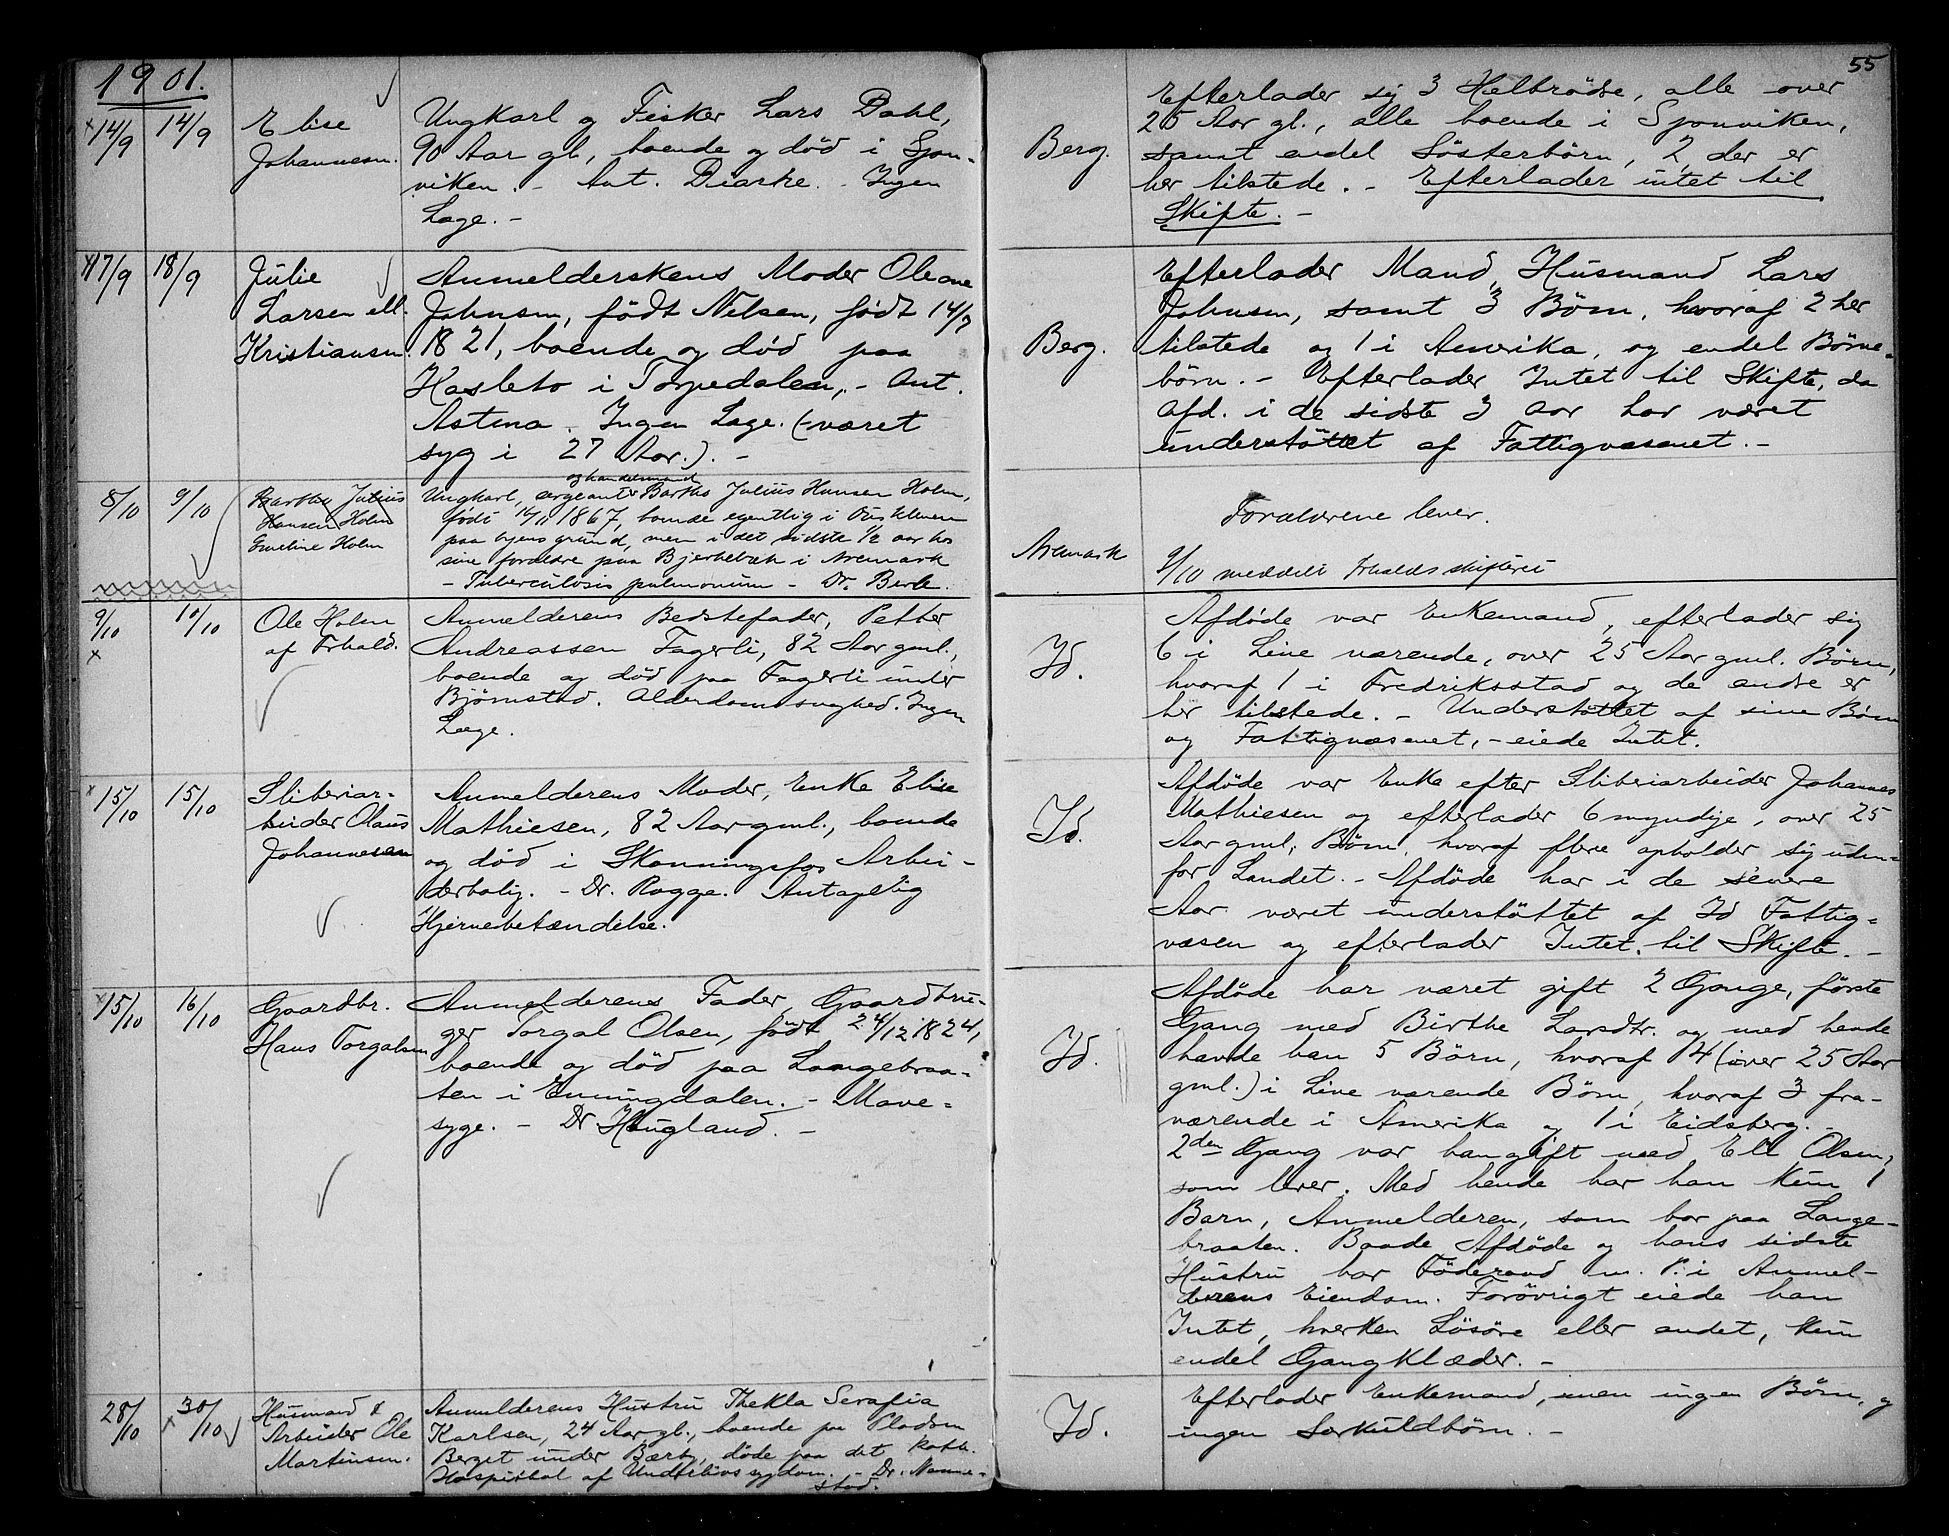 1901.
55
14/9 14/9
Elise
Johannesn.
Ungkarl og Fisker Lars Dahl,
90 Aar gl., boende og død i Spon-
viken. - Ant. Diarke. - Ingen
Læge. -
Berg.
Efterlader sig 3 Helbrødre, alle over
25 Aar gl., alle boende i Sponviken,
samt endel Søsterbørn, 2 der er
her tilstede. - Efterlader intet til
Skifte. -
17/9 18/9
Julie
Larsen ell.
Kristiansen.
Anmelderskens Moder Oleane
Johnsen, født Nilsen, født 14/7
1821, boende og død paa
Hasleto i Torpedalen, - Ant.
Astma. Ingen Læge. (- været
syg i 27 Aar.). -
Berg.
Efterlader Mand, Husmand Lars
Johnsen, samt 3 Børn, hvoraf 2 her
tilstede og 1 i Amerika, og endel Børne-
børn. - Efterlader Intet til Skifte, da
Afd. i de sidste 3 Aar har været
understøttet af Fattigvæsenet. -
8/10 9/10
Barthe Julius
Hansen Holm
Emeline Holm
og handelsmand
Ungkarl, sergeant Barthe Julius Hansen Holm,
født 14/11 1867, boende egentlig i Ous kleven
paa byens grund, men i det sidste 1/2 aar hos
sine forældre paa Bjerkebæk i Aremark
- Tuberculosis pulmonum - Dr. Berle.
Aremark
Forældrene lever.
9/10 meddelt Frhalds skifteret
9/10 10/10
Ole Holm
af Frhald.
Anmelderens Bedstefader, Petter
Andreassen Fagerli, 82 Aar gml.,
boende og død paa Fagerli under
Bjørnstad. Alderdomssvaghed. Ingen
Læge.
Id.
Afdøde var Enkemand, efterlader sig
6 i Live værende, over 25 Aar gml. Børn,
hvoraf 1 i Fredriksstad og de andre er
her tilstede. - Understøttet af sine Børn
og Fattigvæsenet, - eiede Intet.
15/10 15/10
Sliberiar-
beider Olaus
Johannesen
Anmelderens Moder, Enke Elise
Mathiesen, 82 Aar gml., boende
og død i Skonningsfos Arbei-
derbolig. - Dr. Rogge. Antagelig
Hjernebetændelse.
Id.
Afdøde var Enke efter Sliberiarbeider Johannes
Mathiesen og efterlader 6 myndige, over 25
Aar gml. Børn, hvoraf flere opholder sig uden-
for Landet. - Afdøde har i de senere
Aar været understøttet af Id Fattig-
væsen og efterlader Intet til Skifte. -
15/10 16/10
Gaardbr.
Hans Torgalsen
Anmelderens Fader, Gaardbru-
ger Torgal Olsen, født 24/12 1824,
boende og død paa Langebraa-
ten i Enningdalen. - Mave-
syge. - Dr Haugland. -
Id.
Afdøde har været gift 2 Gange, første
Gang med Birthe Larsdtr. og med hende
havde han 5 Børn, hvoraf 4 (over 25 Aar
gml.) i Live værende Børn, hvoraf 3 fra-
værende i Amerika og 1 i Eidsberg. -
2den Gang var han gift med Eli Olsen,
som lever. Med hende har han kun 1
Barn, Anmelderen, som bor paa Lange-
braaten. Baade Afdøde og hans sidste
Hustru har Føderaad m. V. i Anmel-
derens Eiendom. Forøvrigt eiede han
Intet, hverken Løsøre eller andet, kun
endel Gangklæder. -
28/10 30/10
Husmand &
Arbeider Ole
Martinsen.
Anmelderens Hustru Thekla Serafia
Karlsen, 24 Aar gl., boende paa Pladsen
Berget under Bærby, døde paa det kath.
Hospital af Underlivssygdom. - Dr. Nanne-
stad.
Id.
Efterlader Enkemand, men ingen Børn, og
ingen Særkuldbørn. -